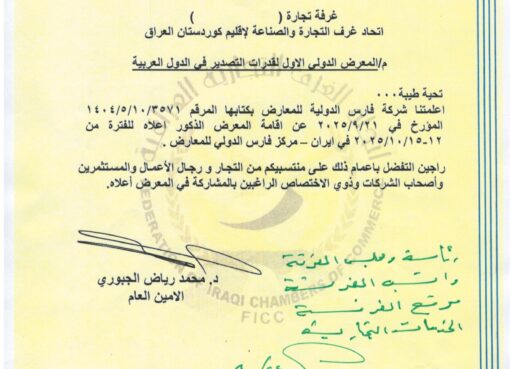 غرفة تجارة (                )
اتحاد غرف التجارة والصناعة لإقليم كوردستان العراق
م/المعرض الدولي الاول لقدرات التصدير في الدول العربية
تحية طيبة...
اعلمتنا شركة فارس الدولية للمعارض بكتابها المرقم ١٤٠٤/٥/١٠/٣٥٧١
المؤرخ في ٢٠٢٥/٩/٢١ عن اقامة المعرض المذكور اعلاه للفترة من
١٢-٢٠٢٥/١٠/١٥ في ايران – مركز فارس الدولي للمعارض .
راجين التفضل باعمام ذلك على منتسبيكم من التجار و رجال الأعمال والمستثمرين
وأصحاب الشركات وذوي الاختصاص الراغبين بالمشاركة في المعرض أعلاه.
د. محمد رياض الجبوري
الامين العام
FEDERATION OF IRAQI CHAMBERS OF COMMERCE
FICC
الخدمات التجارية